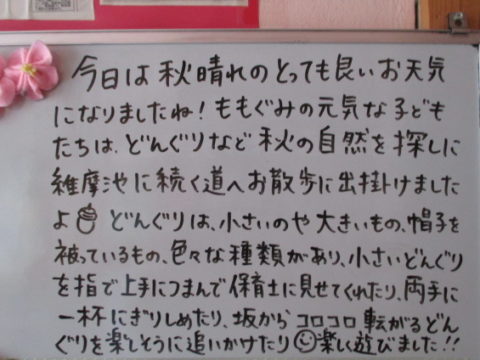 今日は秋晴れのとっても良いお天気
になりましたね！ももぐみの元気な子ども
たちは、どんぐりなど秋の自然を探しに
維摩池に続く道へお散歩に出掛けました
よ どんぐりは、小さいのや大きいもの、帽子を
被っているもの、色々な種類があり、小さいどんぐり
を指で上手につまんで保育士に見せてくれたり、両手に
一杯にぎりしめたり、坂からコロコロ転がるどん
ぐりを楽しそうに追いかけたり 楽しく遊びました!!